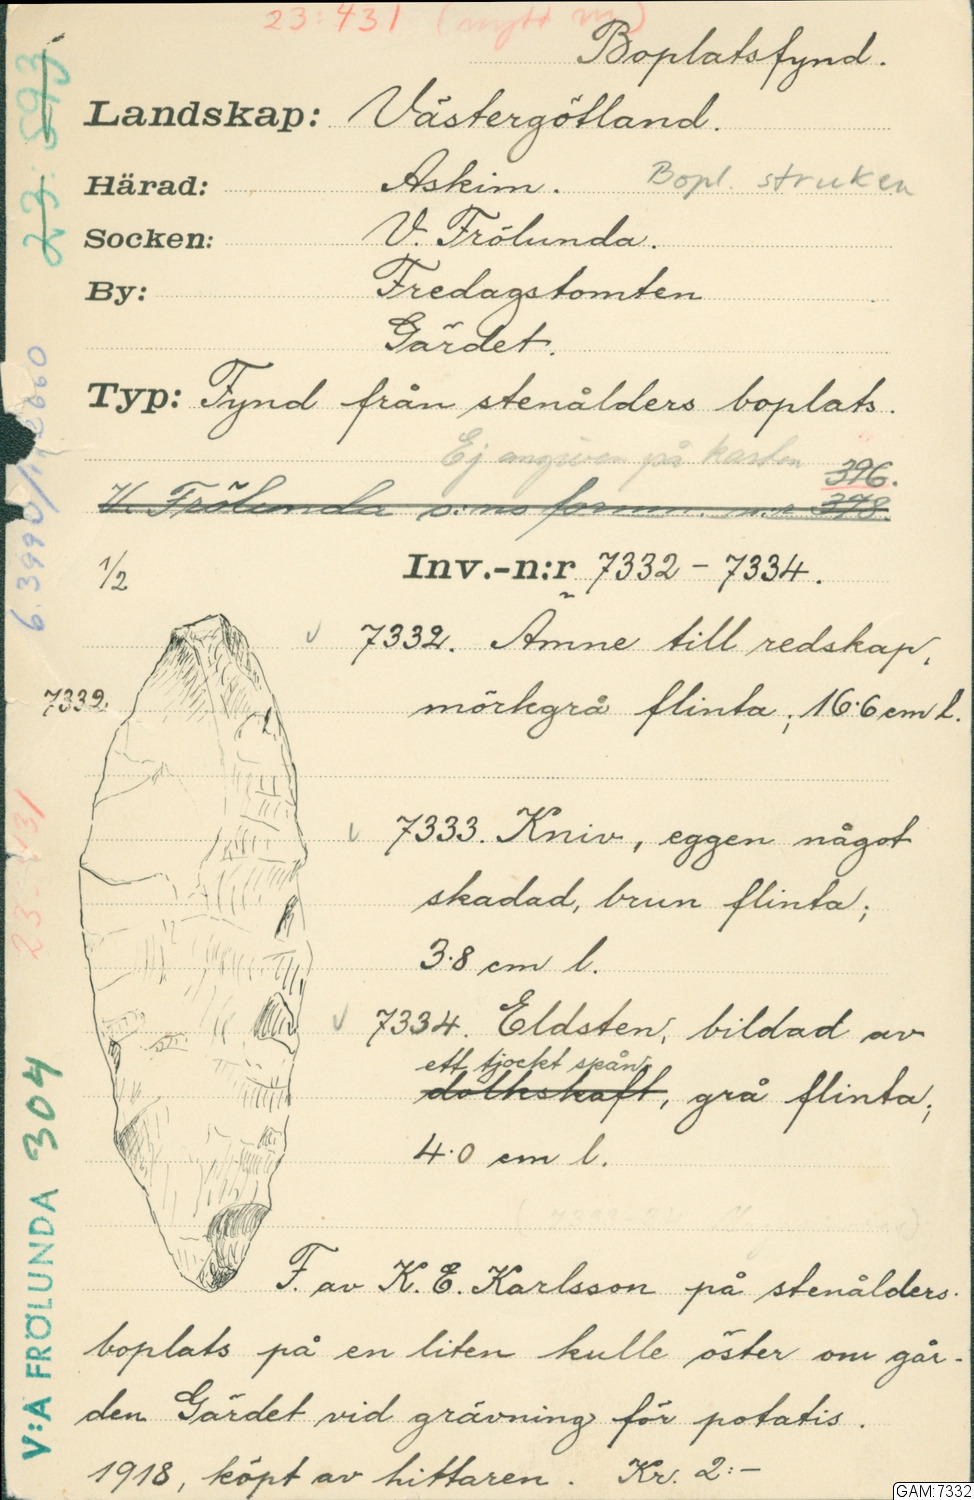 23:431 (nytt nr)
Boplatsfynd.
Landskap: Västergötland.
Härad: Askim. Bopl. struken
Socken: V. Frölunda.
By: Fredagstomten
Gärdet.
Typ: Fynd från stenålders boplats.
Ej angiven på kartan
396.
V. Frölunda s:ns fornm. n:r 378.
1/2
Inv.-n:r 7332 - 7334.
7332. Ämne till redskap,
mörkgrå flinta; 16.6 cm l.
7332.
7333. Kniv, eggen något
skadad, brun flinta;
3.8 cm l.
7334. Eldsten, bildad av
ett tjockt spån,
dolkskaft, grå flinta;
4.0 cm l.
F. av K. E. Karlsson på stenålders-
boplats på en liten kulle öster om går-
den Gärdet vid grävning för potatis.
1918, köpt av hittaren. Kr. 2:-
23:593
23:431
V:A FRÖLUNDA 304
GAM:7332